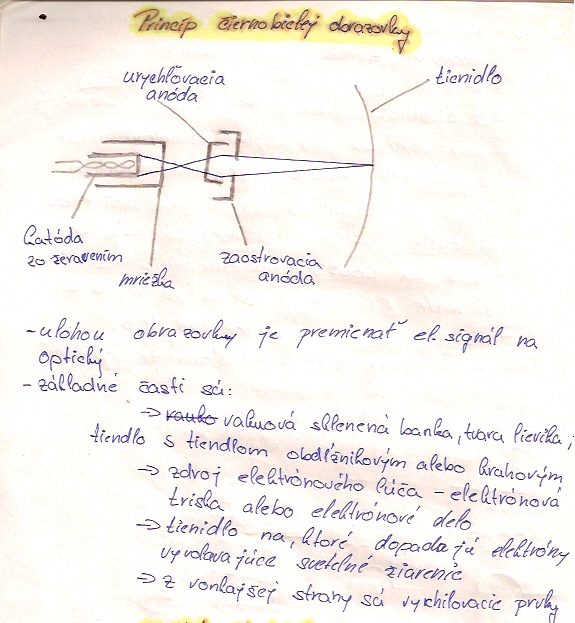 Princíp čiernobielej obrazovky
urýchľovacia
anóda
tienidlo
katóda
zo žeravením
mriežka
zaostrovacia
anóda
-ulohou obrazovky je premienať el. signál na
optický
- základné časti sú:
→ vakuová sklenená banka, tvara lievika,
tiendlo s tiendlom obdĺžnikovým alebo kruhovým
→ zdroj elektrónového lúča - elektrónová
triska alebo elektrónové delo
→ tienidlo na, ktoré dopadajú elektróny
vyvolavajúce svetelné žiarenie
→ z vonkajšej strany sú vychilovacie prvky